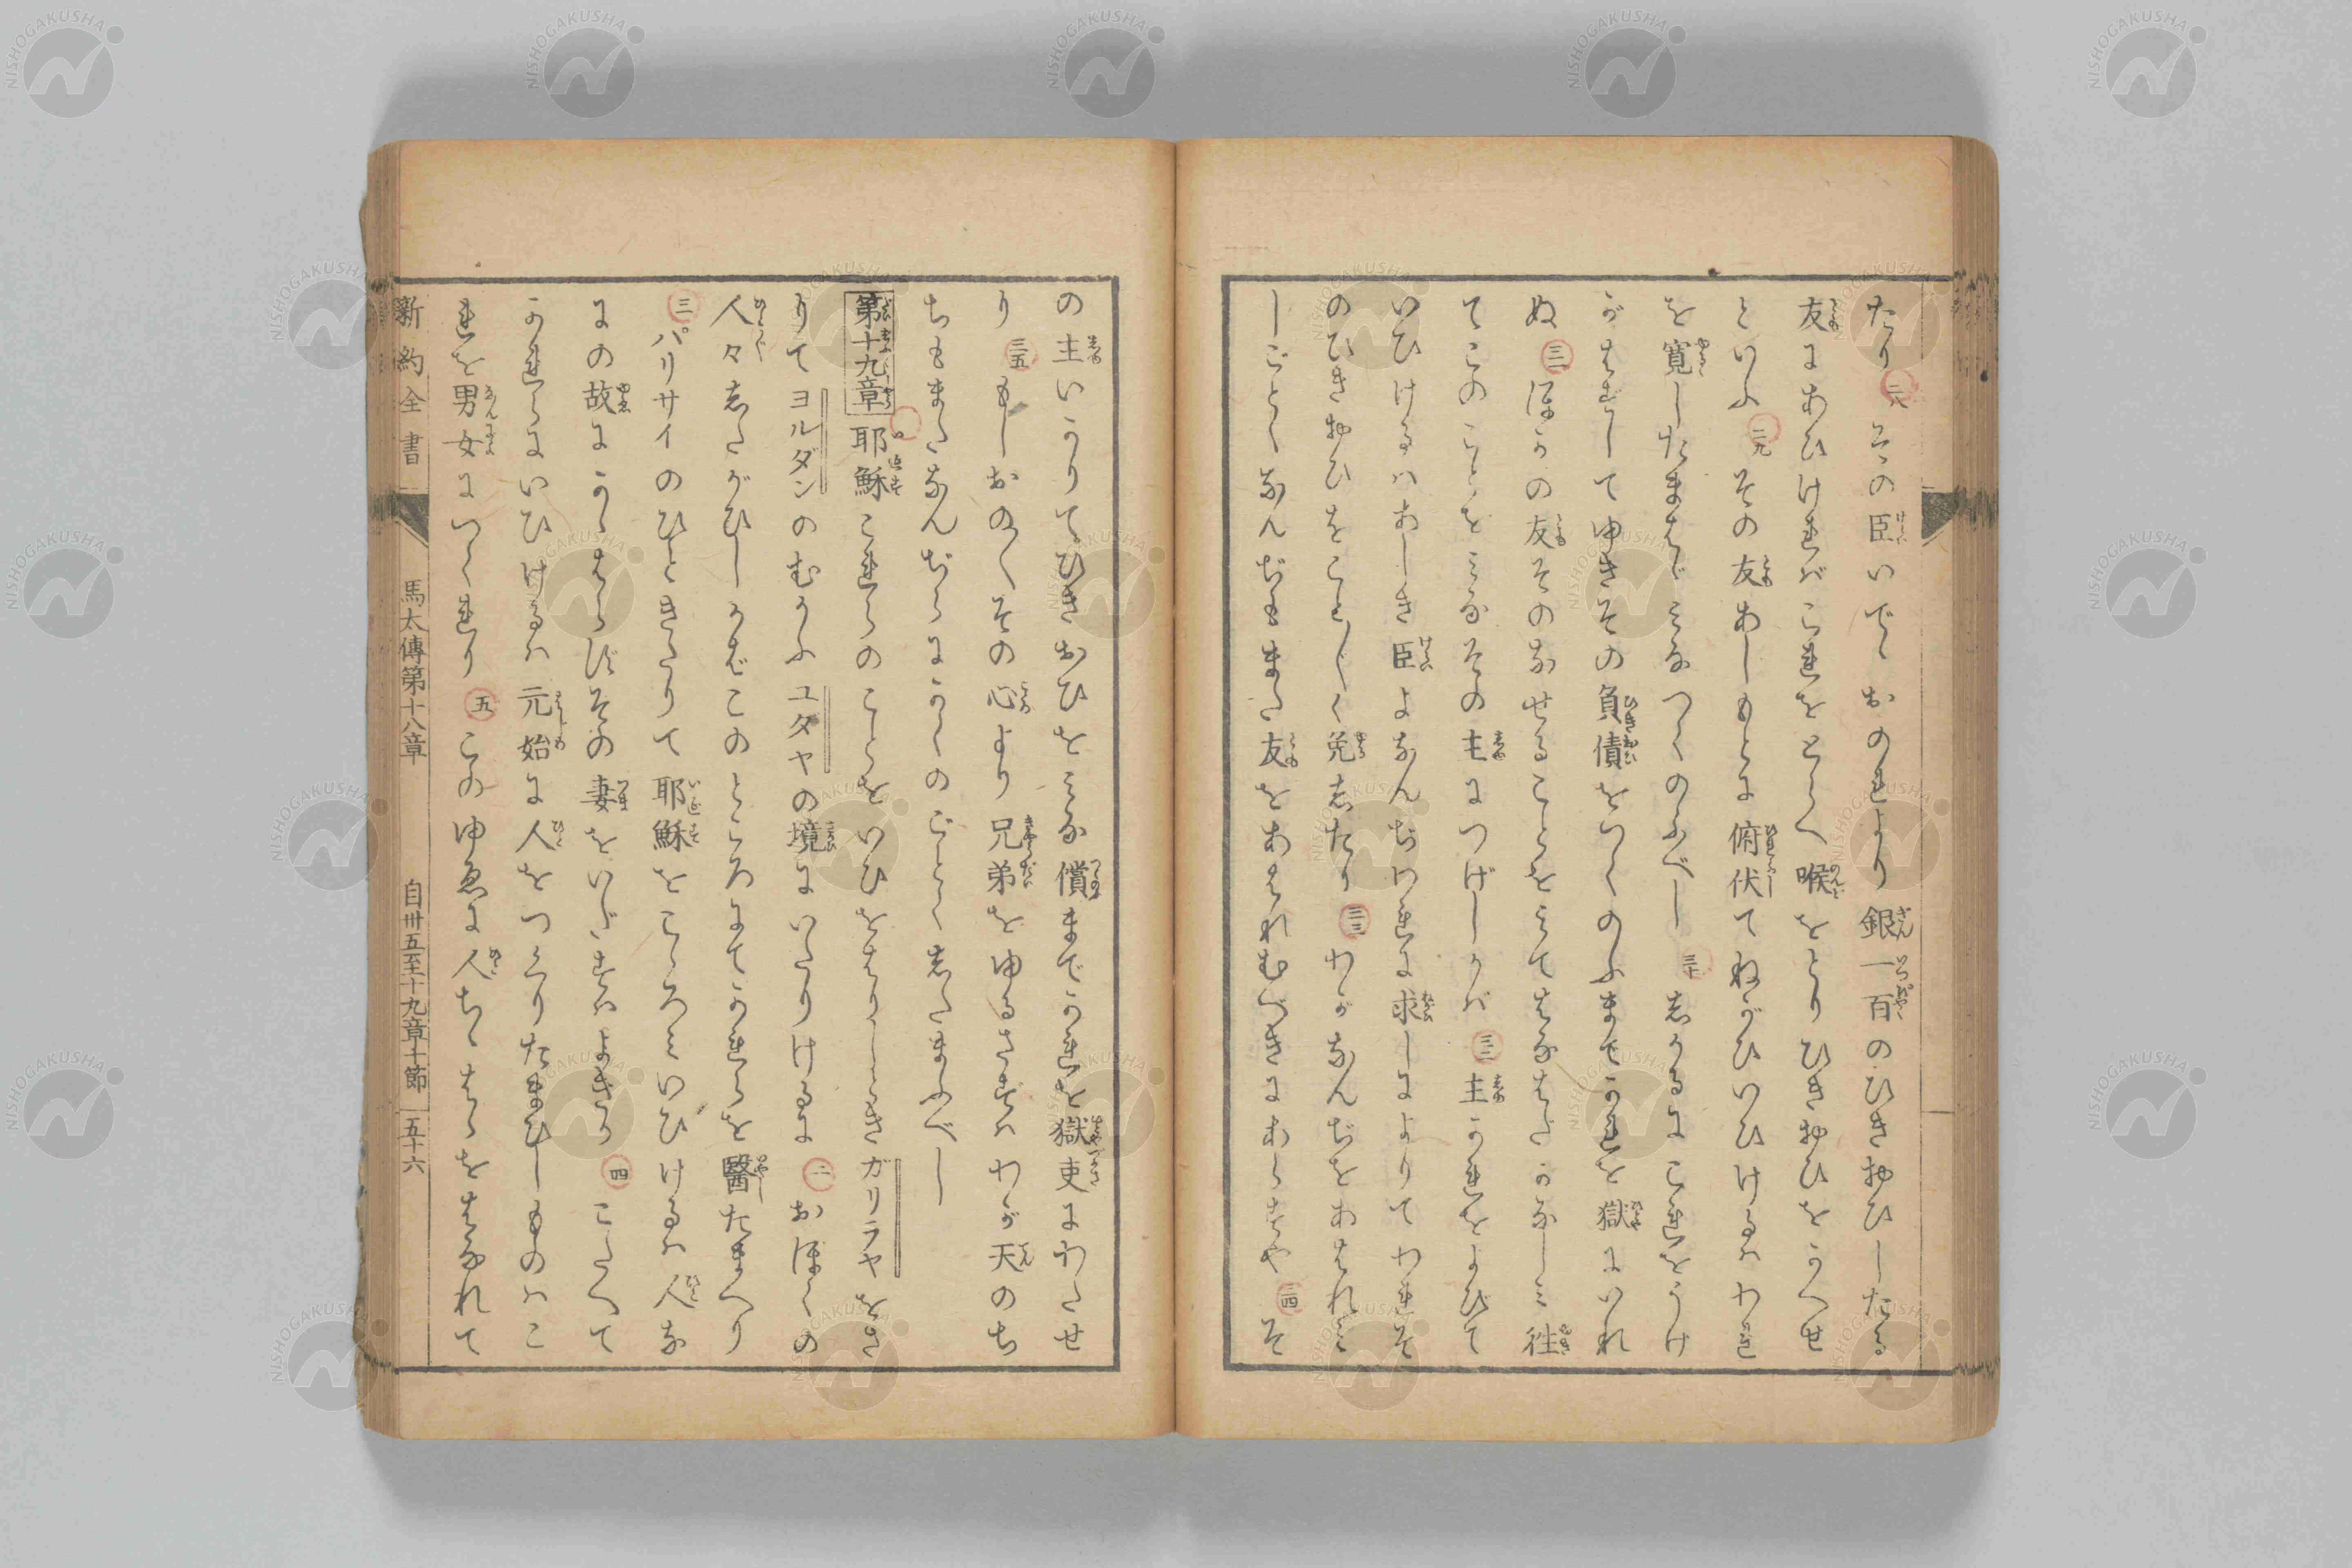 たり 二八 その臣いでゝおのれより銀一百のひきおひしたる
友にあひければこれをとらへ喉をとりひきおひをかへせ
といふ 二九 その友あしもとに俯伏てねがひいひけるハわれ
を寛したまはゞみなつくのふべし 三十 志かるにこれをうけ
がはずしてゆきその負債をつくのふまでかれを獄にいれ
ぬ 三一 ほかの友そのなせることをみてはなはだかなしミ往
てこのことをみなその主につげしかバ 三二 主かれをよびて
いひけるハあしき臣よなんぢわれに求しによりてわれそ
のひきおひをこと〴〵く免志たり 三三 わがなんぢをあはれミ
しごとくなんぢもまた友をあはれむべきにあらずや 三四 そ
の主いかりてひきおひをみな償までかれを獄吏にわたせ
り 三五 もしおの〳〵その心より兄弟をゆるさずハわが天のち
ちもまたなんぢらにかくのごとく志たまふべし
第十九章 耶穌これらのことをいひをはりしときガリラヤをさ
りてヨルダンのむかふユダヤの境にいたりけるに 二 おほくの
人々志たがひしかばこのところにてかれらを醫たまへり
三 パリサイのひときたりて耶穌をこゝろミいひけるハ人な
にの故にかゝはらずその妻をいだすハよきか 四 こたへて
かれらにいひけるハ元始に人をつくりたまひしものハこ
れを男女につくれり 五 このゆゑに人ちゝはゝをはなれて
新約全書 馬太傳第十八章 自卅五至十九章十節 五十六
NISHOGAKUSHA